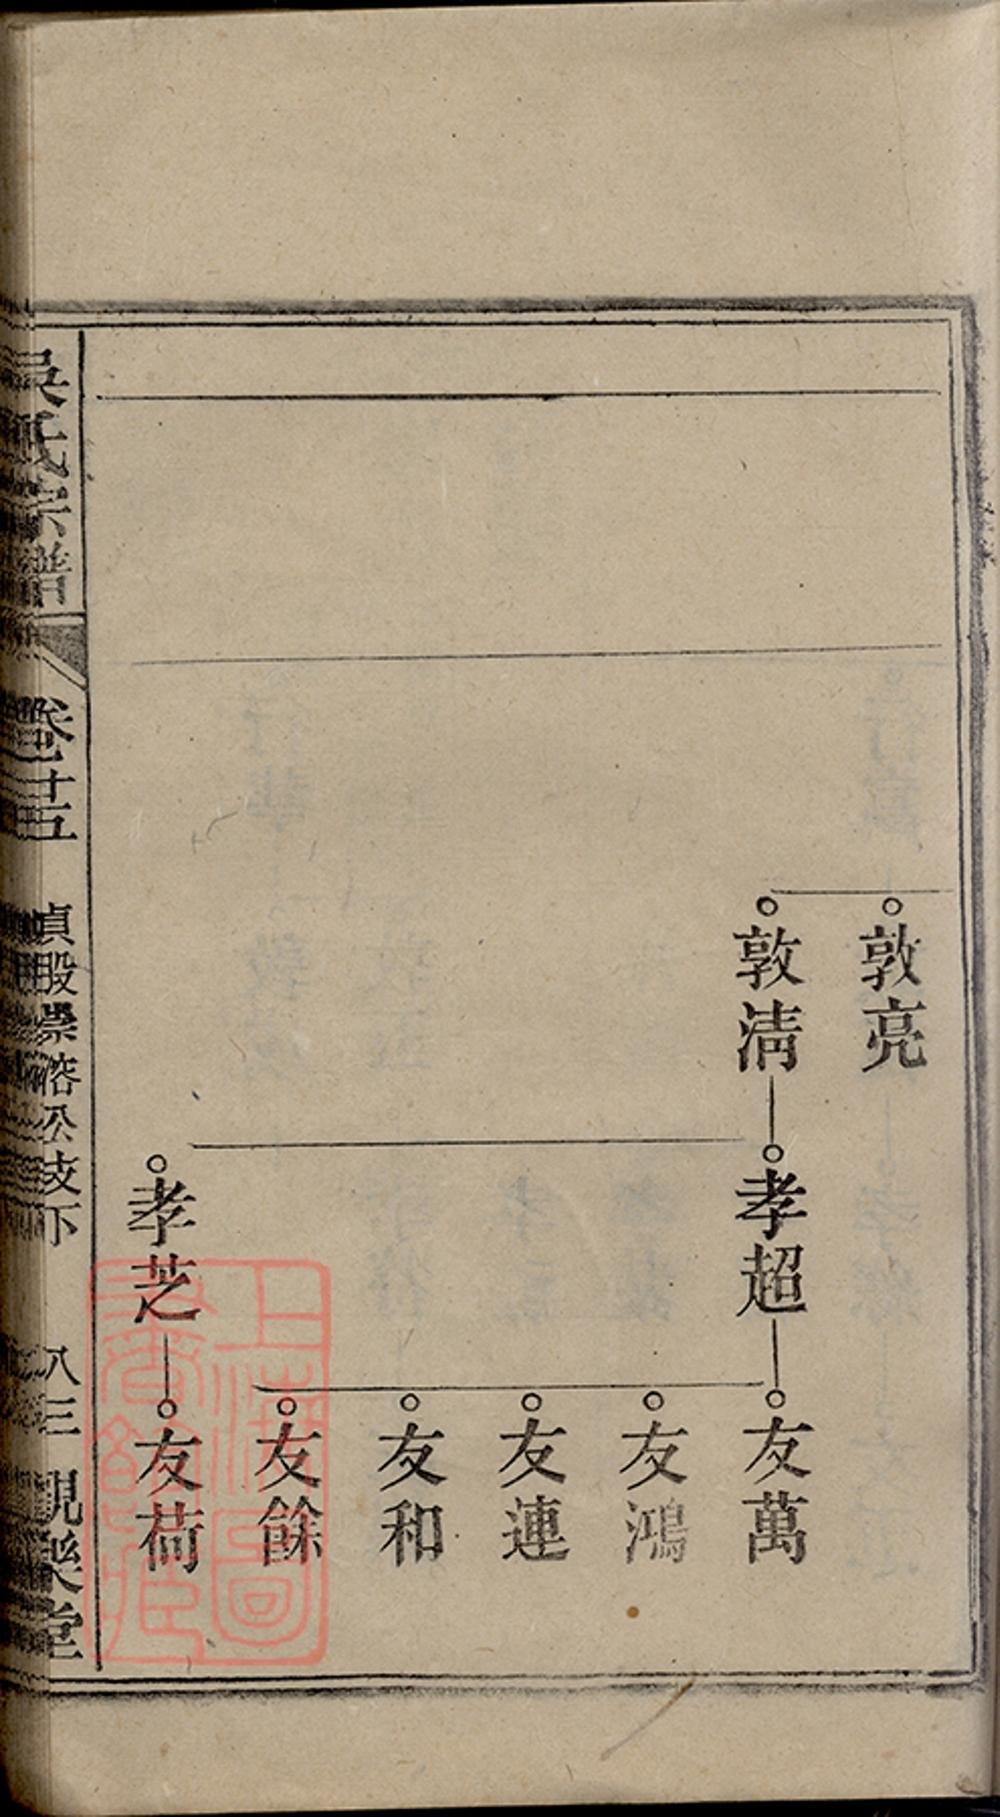 敦亮
敦淸
孝超
友萬
友鴻
友連
友和
友餘
孝芝
友荷
吳氏宗譜
卷之十五
貞股崇溶公支下
八三
覩樂堂
上海圖
書館藏